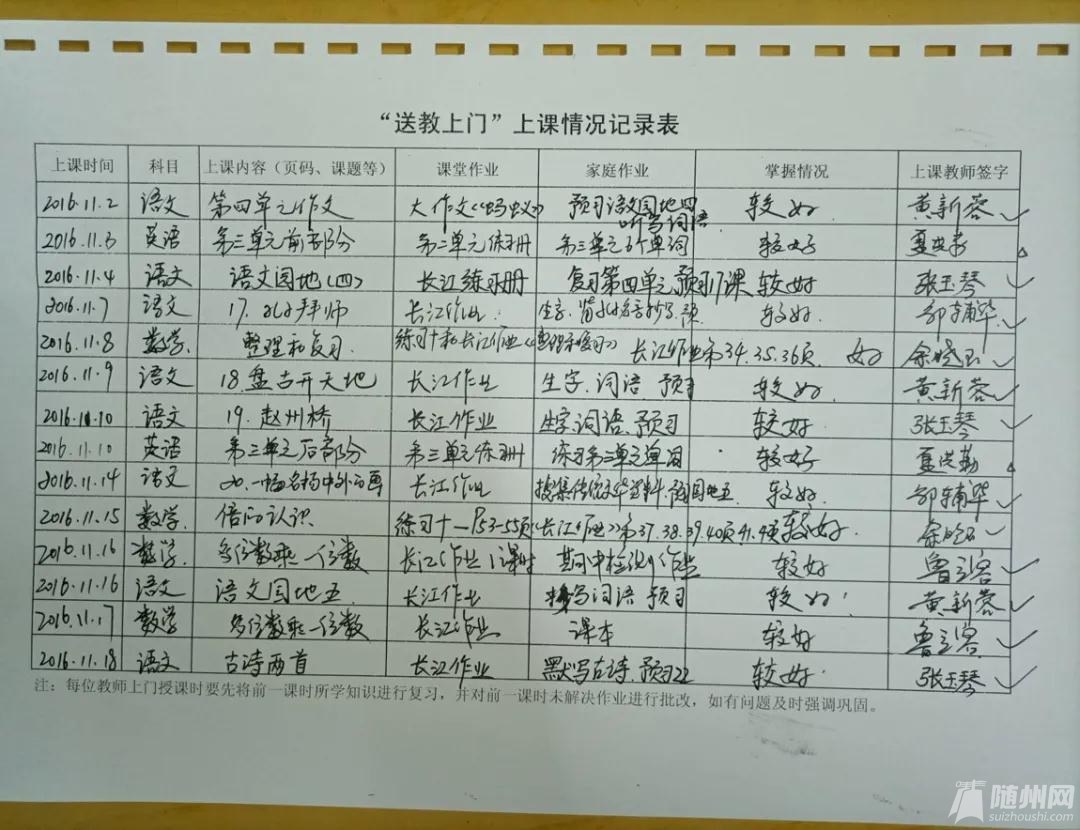 “送教上门”上课情况记录表
上课时间 科目 上课内容（页码、课题等） 课堂作业 家庭作业 掌握情况 上课教师签字
2016.11.2 语文 第四单元作文 大作文《蚂蚁》 预习语文园地四 听写词语 较好 黄新蓉
2016.11.3 英语 第三单元前部分 第三单元练习册 第三单元6个单词 较好
2016.11.4 语文 语文园地(四) 长江练习册 复习第四单元.预习17课 较好 张玉琴
2016.11.7 语文 17.孔子拜师 长江作业. 生字. 较好. 邹辅华
2016.11.8 数学. 整理和复习. 练习十和长江作业《整理和复习》 长江作业第34.35.36页. 好
2016.11.9 语文 18.盘古开天地 长江作业 生字.词语.预习 较好. 黄新蓉
2016.11.10 语文 19.赵州桥 长江作业 生字.词语.预习 较好. 张玉琴
2016.11.10 英语 第三单元后部分 第三单元练习册 练习第三单元单词 较好
2016.11.14 语文 20.一幅名扬中外的画 长江作业 搜集传统文化资料. 较好. 邹辅华
2016.11.15 数学. 倍的认识 练习十一P53-55页 《长江作业》第37.38.39.40页41.4页 较好.
2016.11.16 数学. 多位数乘一位数 长江作业1课时 期中检测作业 较好
2016.11.16 语文 语文园地五 长江作业 写词语 预习 较好. 黄新蓉
2016.11.17 数学 多位数乘一位数 长江作业 课本 较好
2016.11.18 语文 古诗两首 长江作业 默写古诗.预习22 较好. 张玉琴
注：每位教师上门授课时要先将前一课时所学知识进行复习，并对前一课时未解决作业进行批改，如有问题及时强调巩固。
随州网
suizhoushi.com